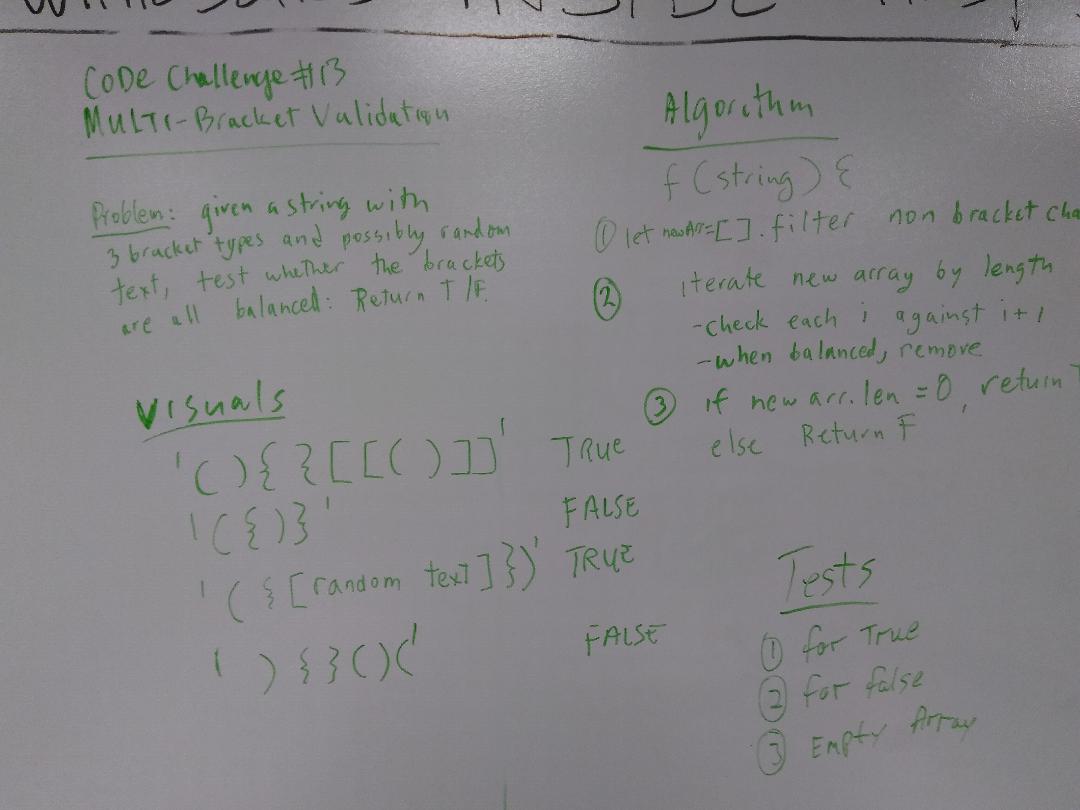 INSIDE
CODE Challenge #13
MULTI-Bracket Validation
Problem: given a string with
3 bracket types and possibly random
text, test whether the brackets
are all balanced: Return T/F.
Visuals
'(){}[[()]]' TRUE
'({)}' FALSE
'({[random text]})' TRUE
'){}()(' FALSE
Algorithm
f(string) {
① let newArr=[].filter non bracket cha
② iterate new array by length
-check each i against i+1
-when balanced, remove
③ if new arr.len = 0, return T
else Return F
Tests
① for True
② for false
③ Empty Array